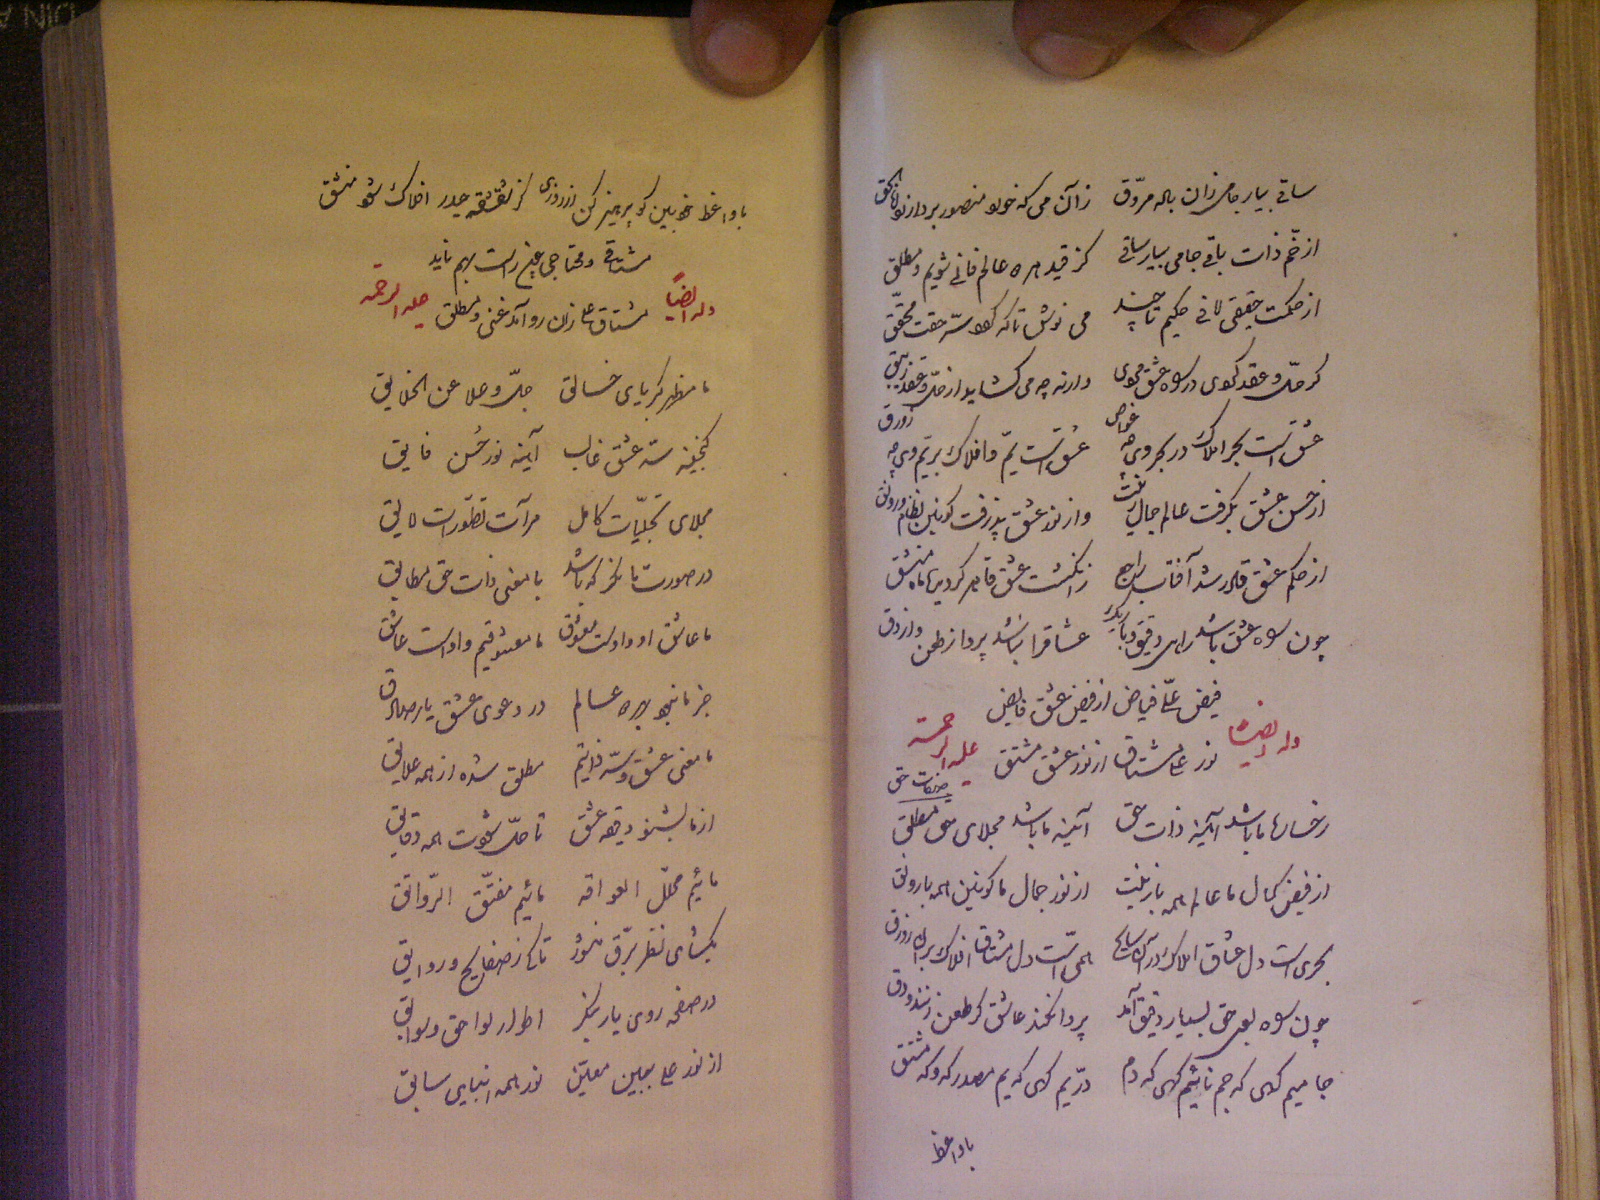 ساقی بیار جامی زان باده مروّق زآن می که خورد منصور بر دار زد اناالحق
از خمّ ذات باقی جامی بیار ساقی کز قید هر دو عالم فانی شویم و مطلق
از حکمت حقیقی لافی حکیم تا چند می نوش تا که گردد سرّ حقت محقّق
گر حلّ و عقد جویی در راه عشق میجوی وارنه چه می کشاید از حلّ و عقد زیبق
عشق است بحر املاک در بحر وی چه غواص عشق است یمّ و افلاک بر یمّ وی چه زورق
از حسن عشق بگرفت عالم جمال زینت و از نور عشق پذرفت کونین نظم و رونق
از حکم عشق قادر شد آفتاب راجع زانگشت عشق قاهر گردید ماه منشق
چون راه عشق باشد راهی دقیق و باریک عشاق را نباشد پروا ز طعن و از دق
فیض علی فیاض از فیض عشق فایض
نور علی مشتاق از نور عشق مشتق
وله ایضاً علیه الرحمة
رخساره ما باشد آئینه ذات حق آئینه ما باشد مجلای حق مطلق
صفات حق
از فیض کمال ما عالم همه با زینت از نور جمال ما کونین همه با رونق
بحری است دل عشاق املاک در آن یمّی است دل مشتاق افلاک بر آن زورق
چون راه حق بسیار دقیق آمد پروا نکند عاشق گر طعن زنند و دق
جامیم گهی که جم نائیم گهی که دم درّیم گهی که یم مصدر که و که مشتق
با واعظ
با واعظ خودبین گو پرهیز کن از زرقی کز شقشقه حیدر افلاک شود منشق
مشتاقی و محتاجی راست بهم ناید
مشتاق علی زان رو آمد غنی و مطلق
وله ایضاً علیه الرحمه
ما مظهر کبریای خالق جلّ و علا عن الخلایق
گنجینه سرّ عشق غالب آئینه نور حُسن فایق
مجلای تجلیّات کامل مرآت تطوّرات لایق
در صورت ما نگر که باشد با معنی ذات حق مطابق
ما عاشق او و اوست معشوق ما معشوقیم و اوست عاشق
جز ما نبود بهر دو عالم در دعوی عشق یار صادق
ما معنی عشق و سرّ ذاتیم مطلق شده از همه علایق
از ما بشنو دقیقه عشق تا حلّ شودت همه دقایق
مائیم محلّل مائیم مفتّق الرّواتق
بگشای نظر برّق منشور تا کی ز صفایح و روایق
در صفحه روی یار بنگر اطوار لواحق و سوابق
از نور علی ببین معیّن نور همه انبیای سابق